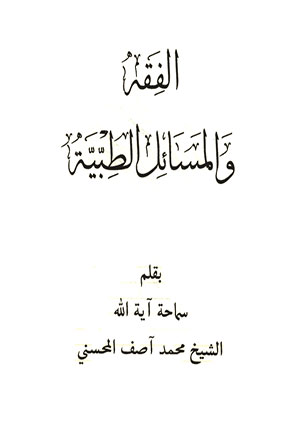 الفِقه
وَالمَسَائِل الطِبّيَّة
بقلم
سماحة آية الله
الشيخ محمد آصف المحسني